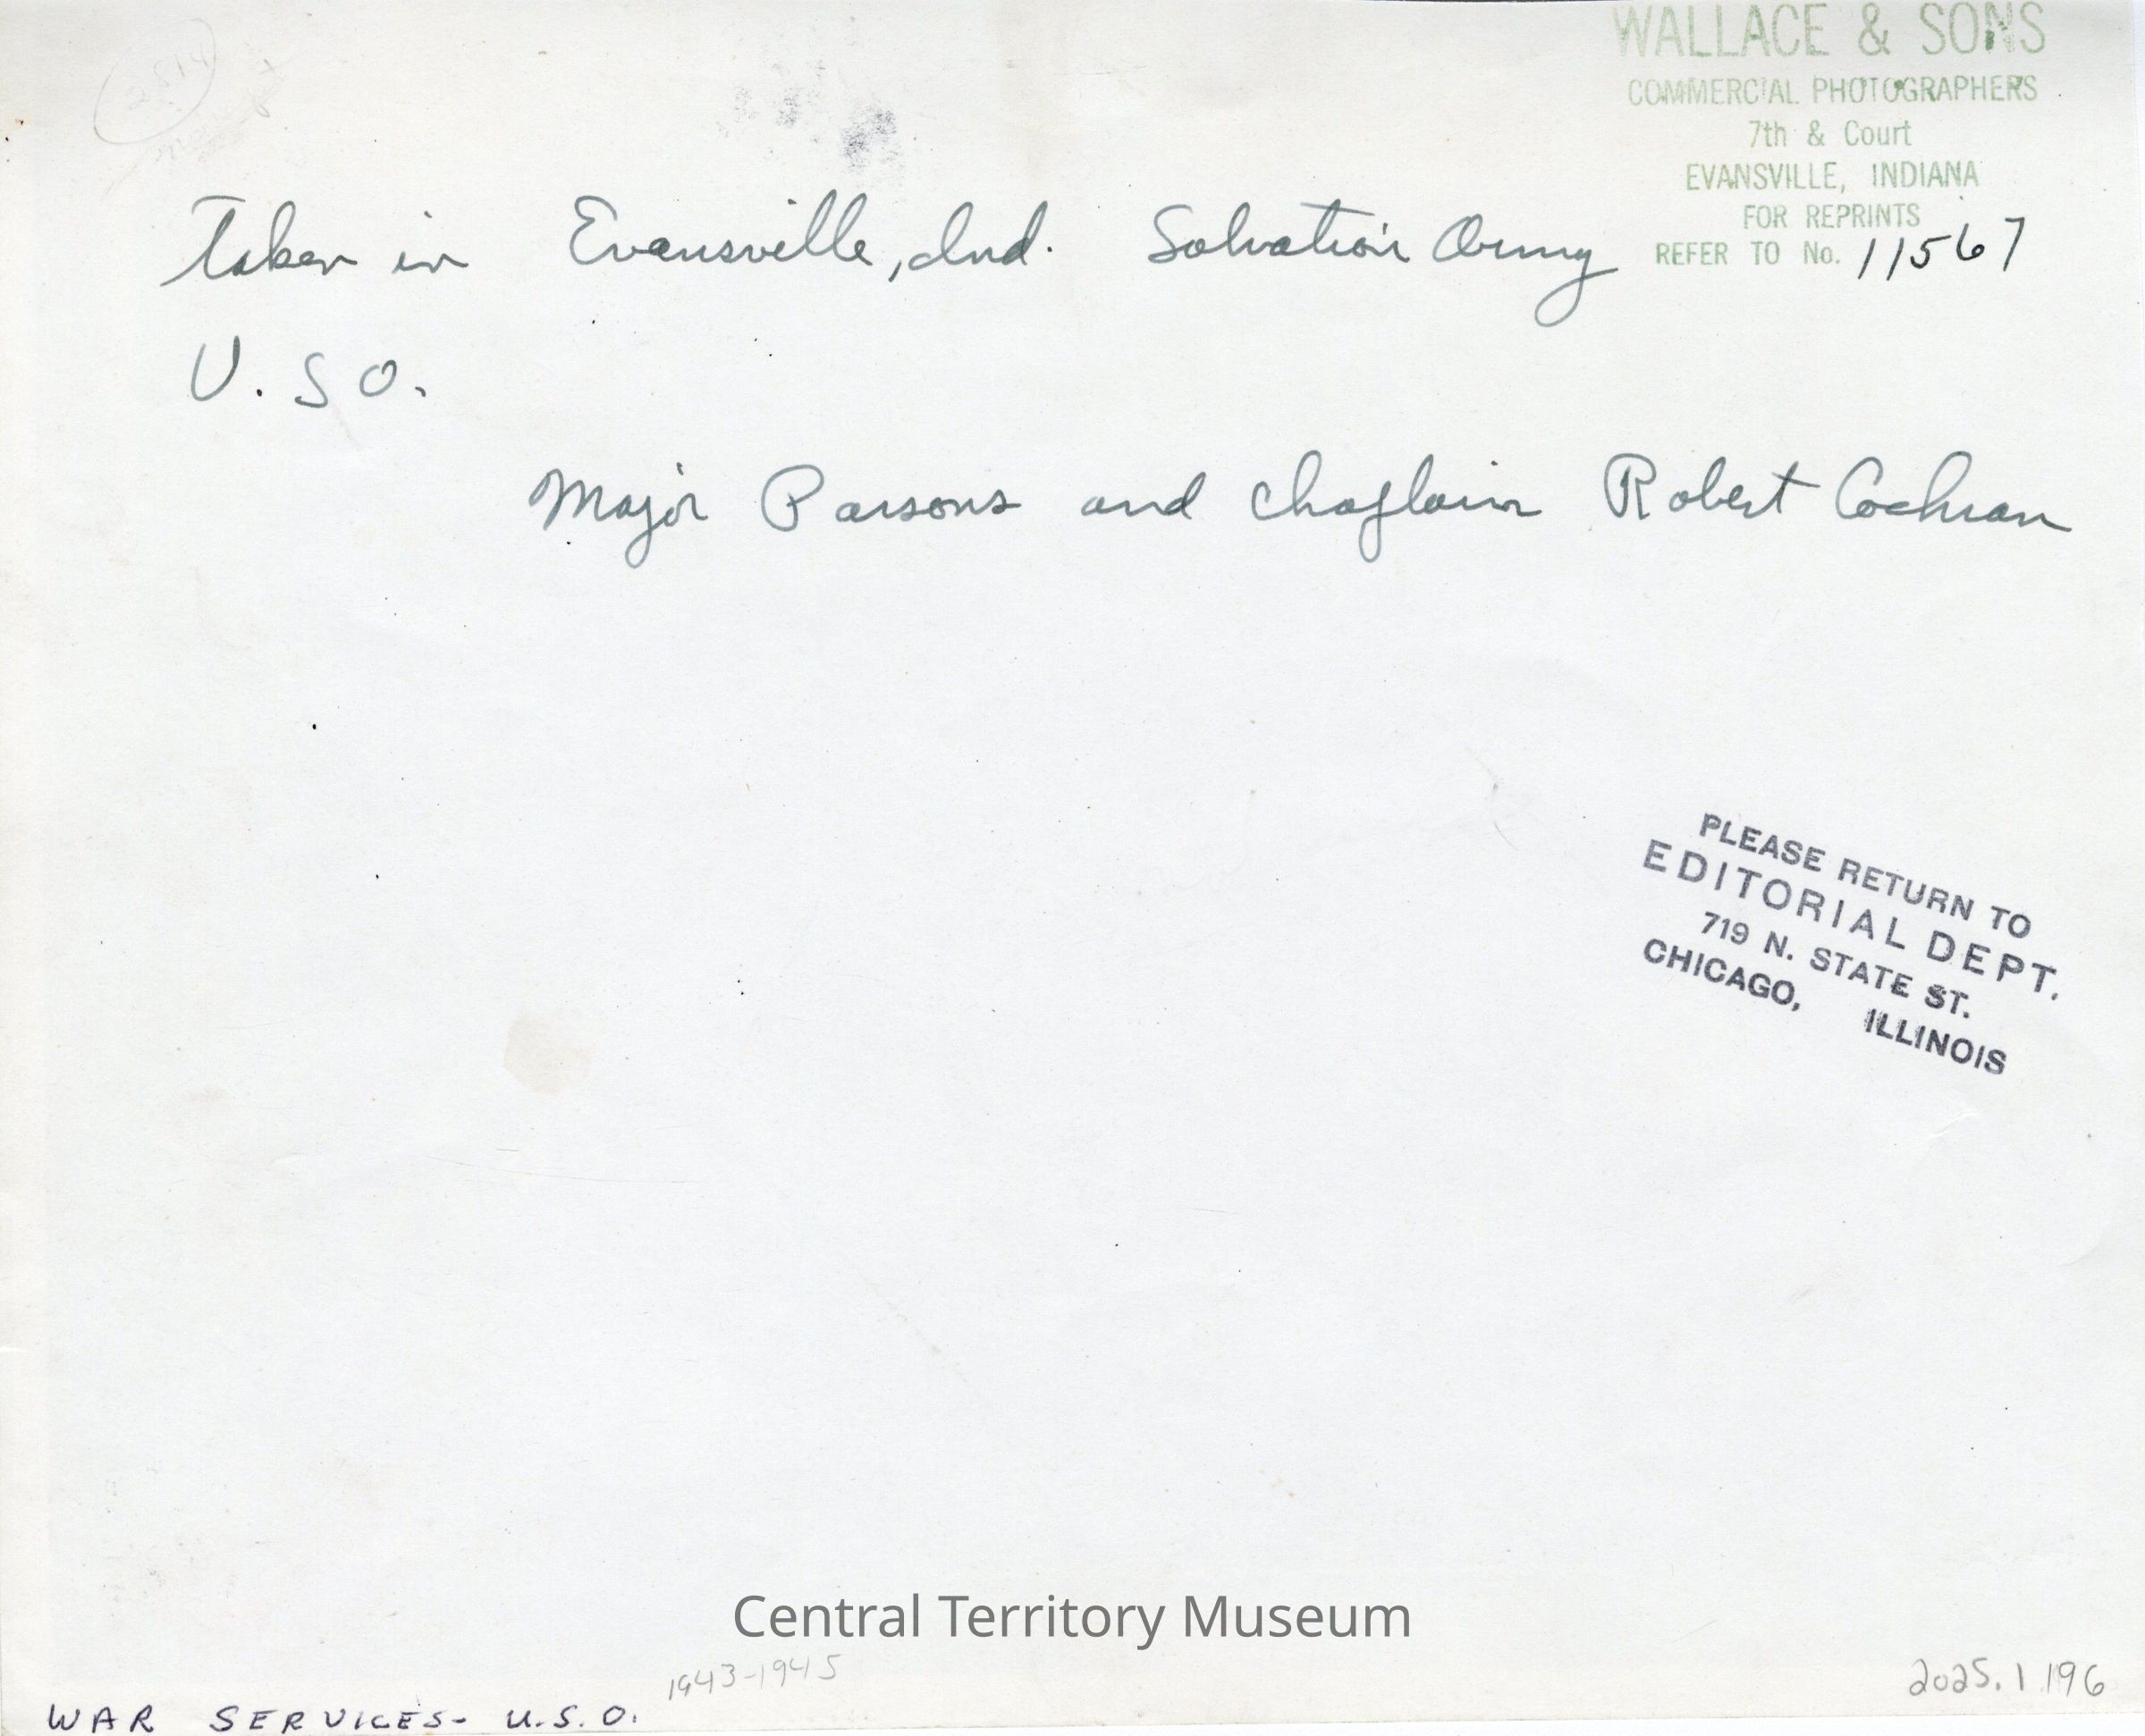 2514
WALLACE & SONS
COMMERCIAL PHOTOGRAPHERS
7th & Court
EVANSVILLE, INDIANA
FOR REPRINTS
REFER TO No. 11567
Taken in Evansville, Ind. Salvation Army
U.SO.
Major Parsons and Chaplain Robert Cochran
PLEASE RETURN TO
EDITORIAL DEPT.
719 N. STATE ST.
CHICAGO, ILLINOIS
Central Territory Museum
1943-1945
2025.1.196
WAR SERVICES- U.S.O.